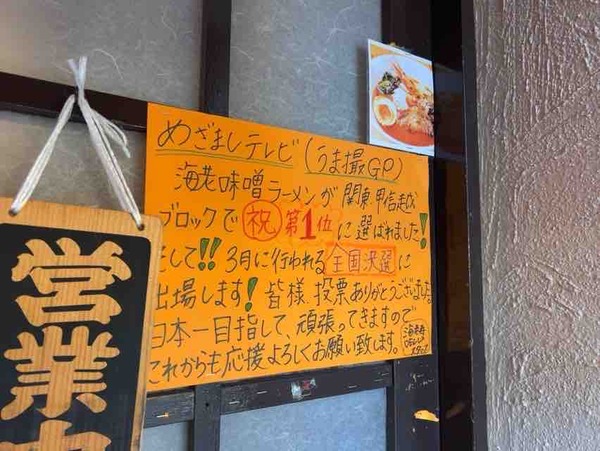 めざましテレビ(うま撮GP)
海老味噌ラーメンが関東甲信越
ブロックで祝第1位に選ばれました!
そして!!3月に行われる全国決選に
出場します!皆様、投票ありがとうございました
日本一目指して、頑張ってきますので
これからも応援よろしくお願い致します。
営業中